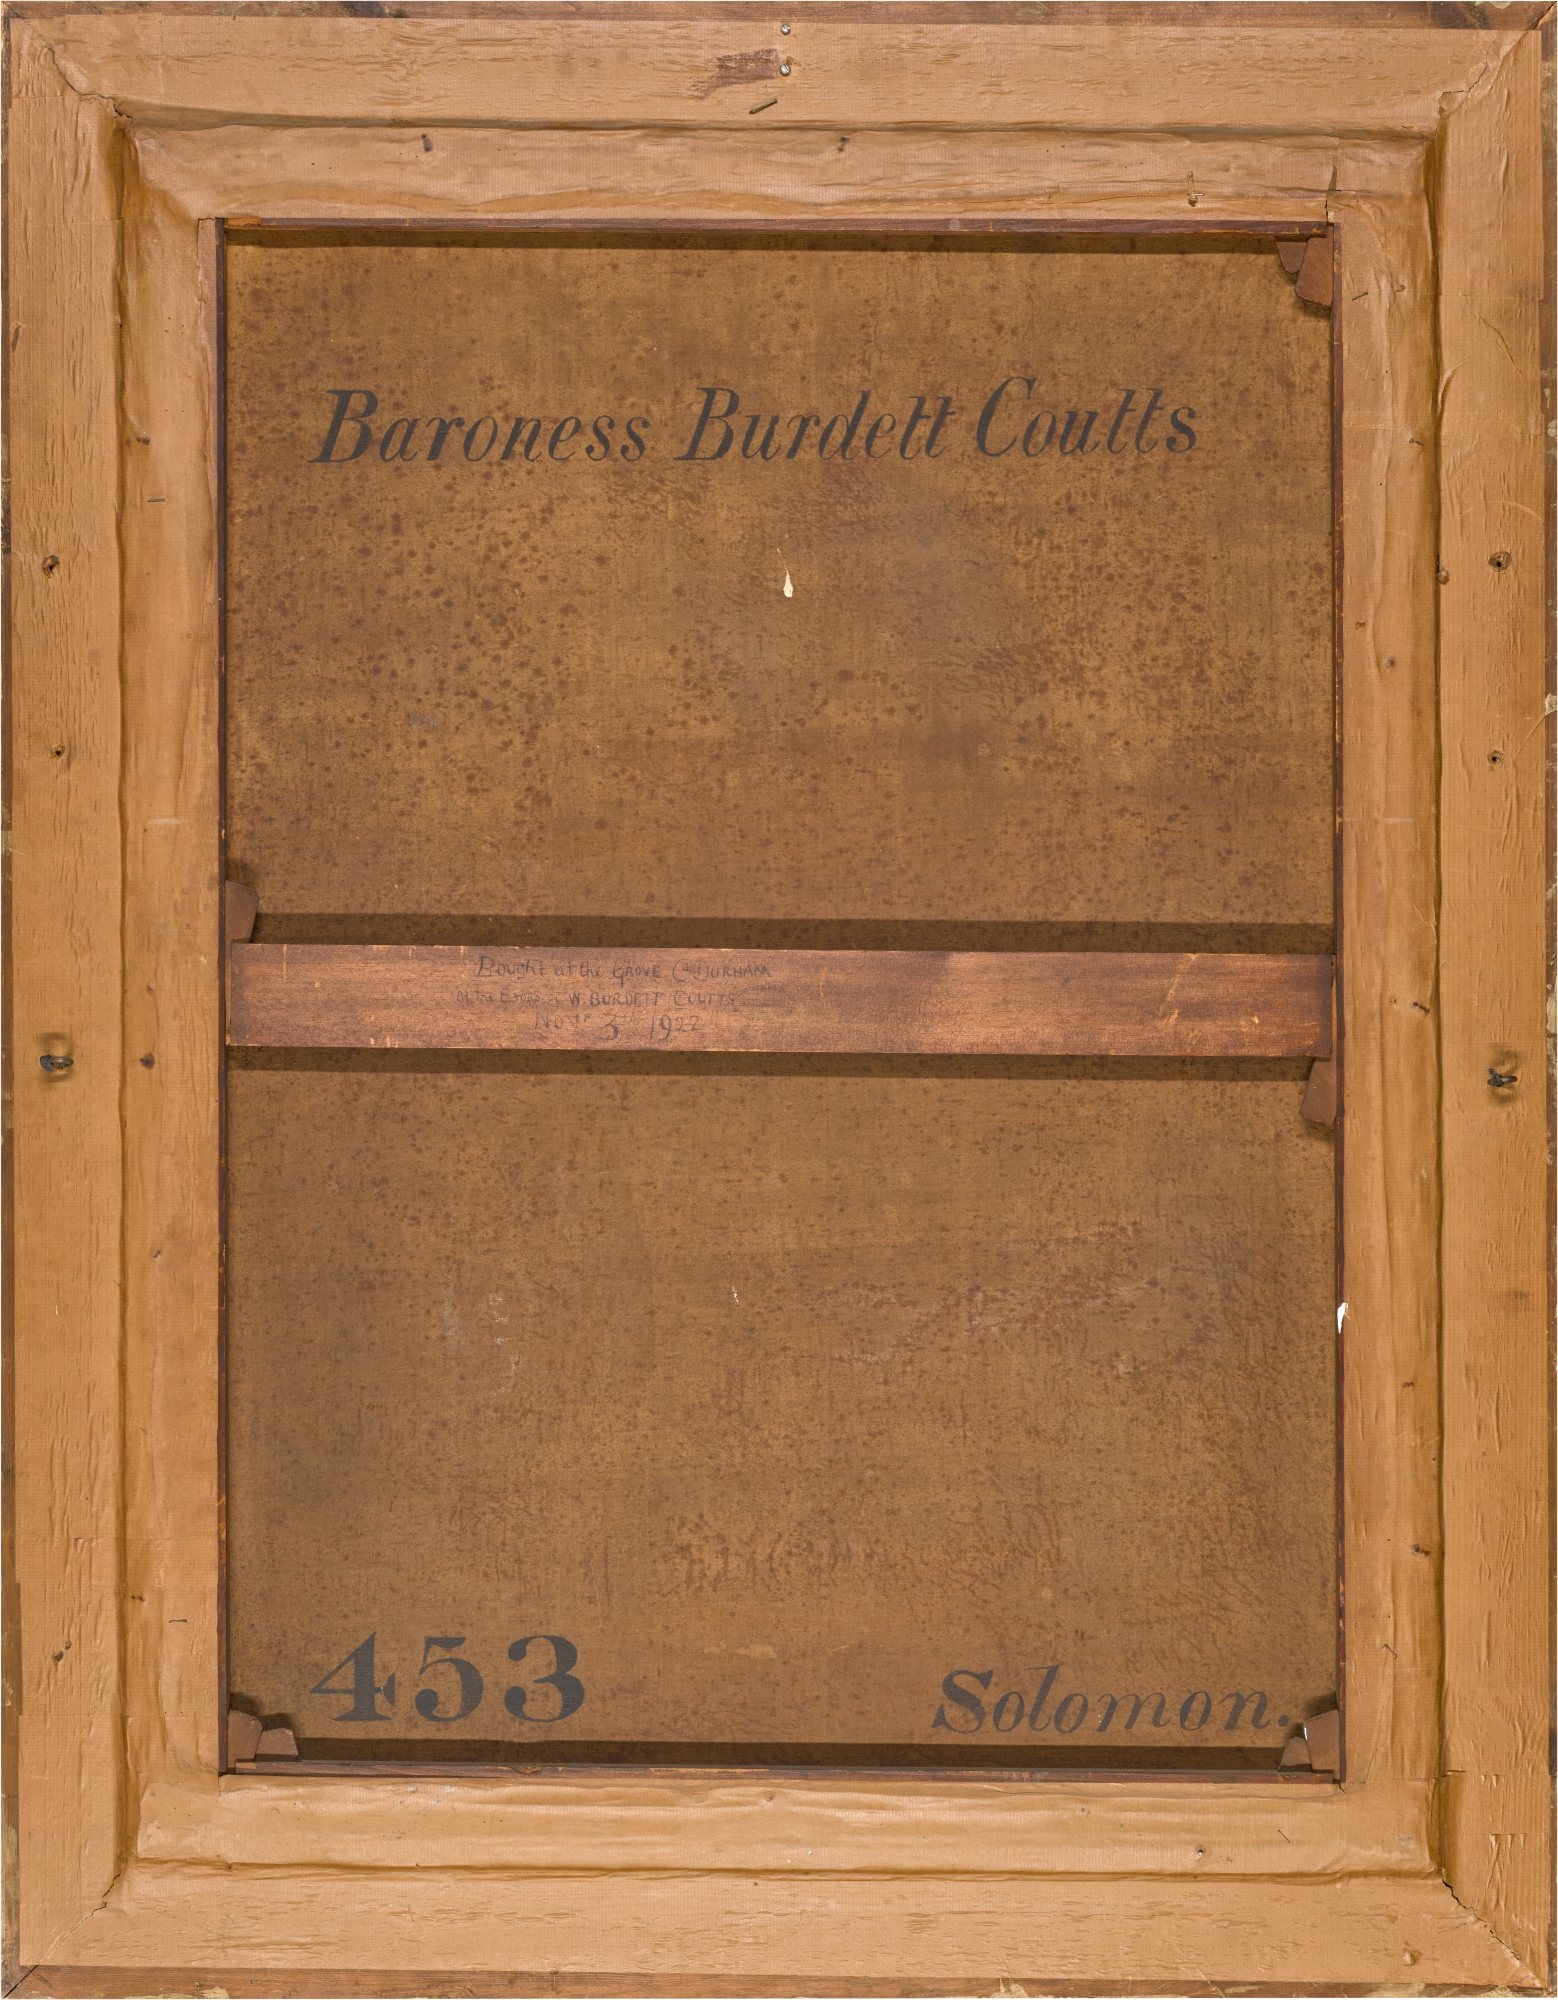 Baroness Burdett Coutts
Bought at the GROVE Co DURHAM
of the Exors of W. BURDETT COUTTS
Novr 3rd 1922
453
Solomon.